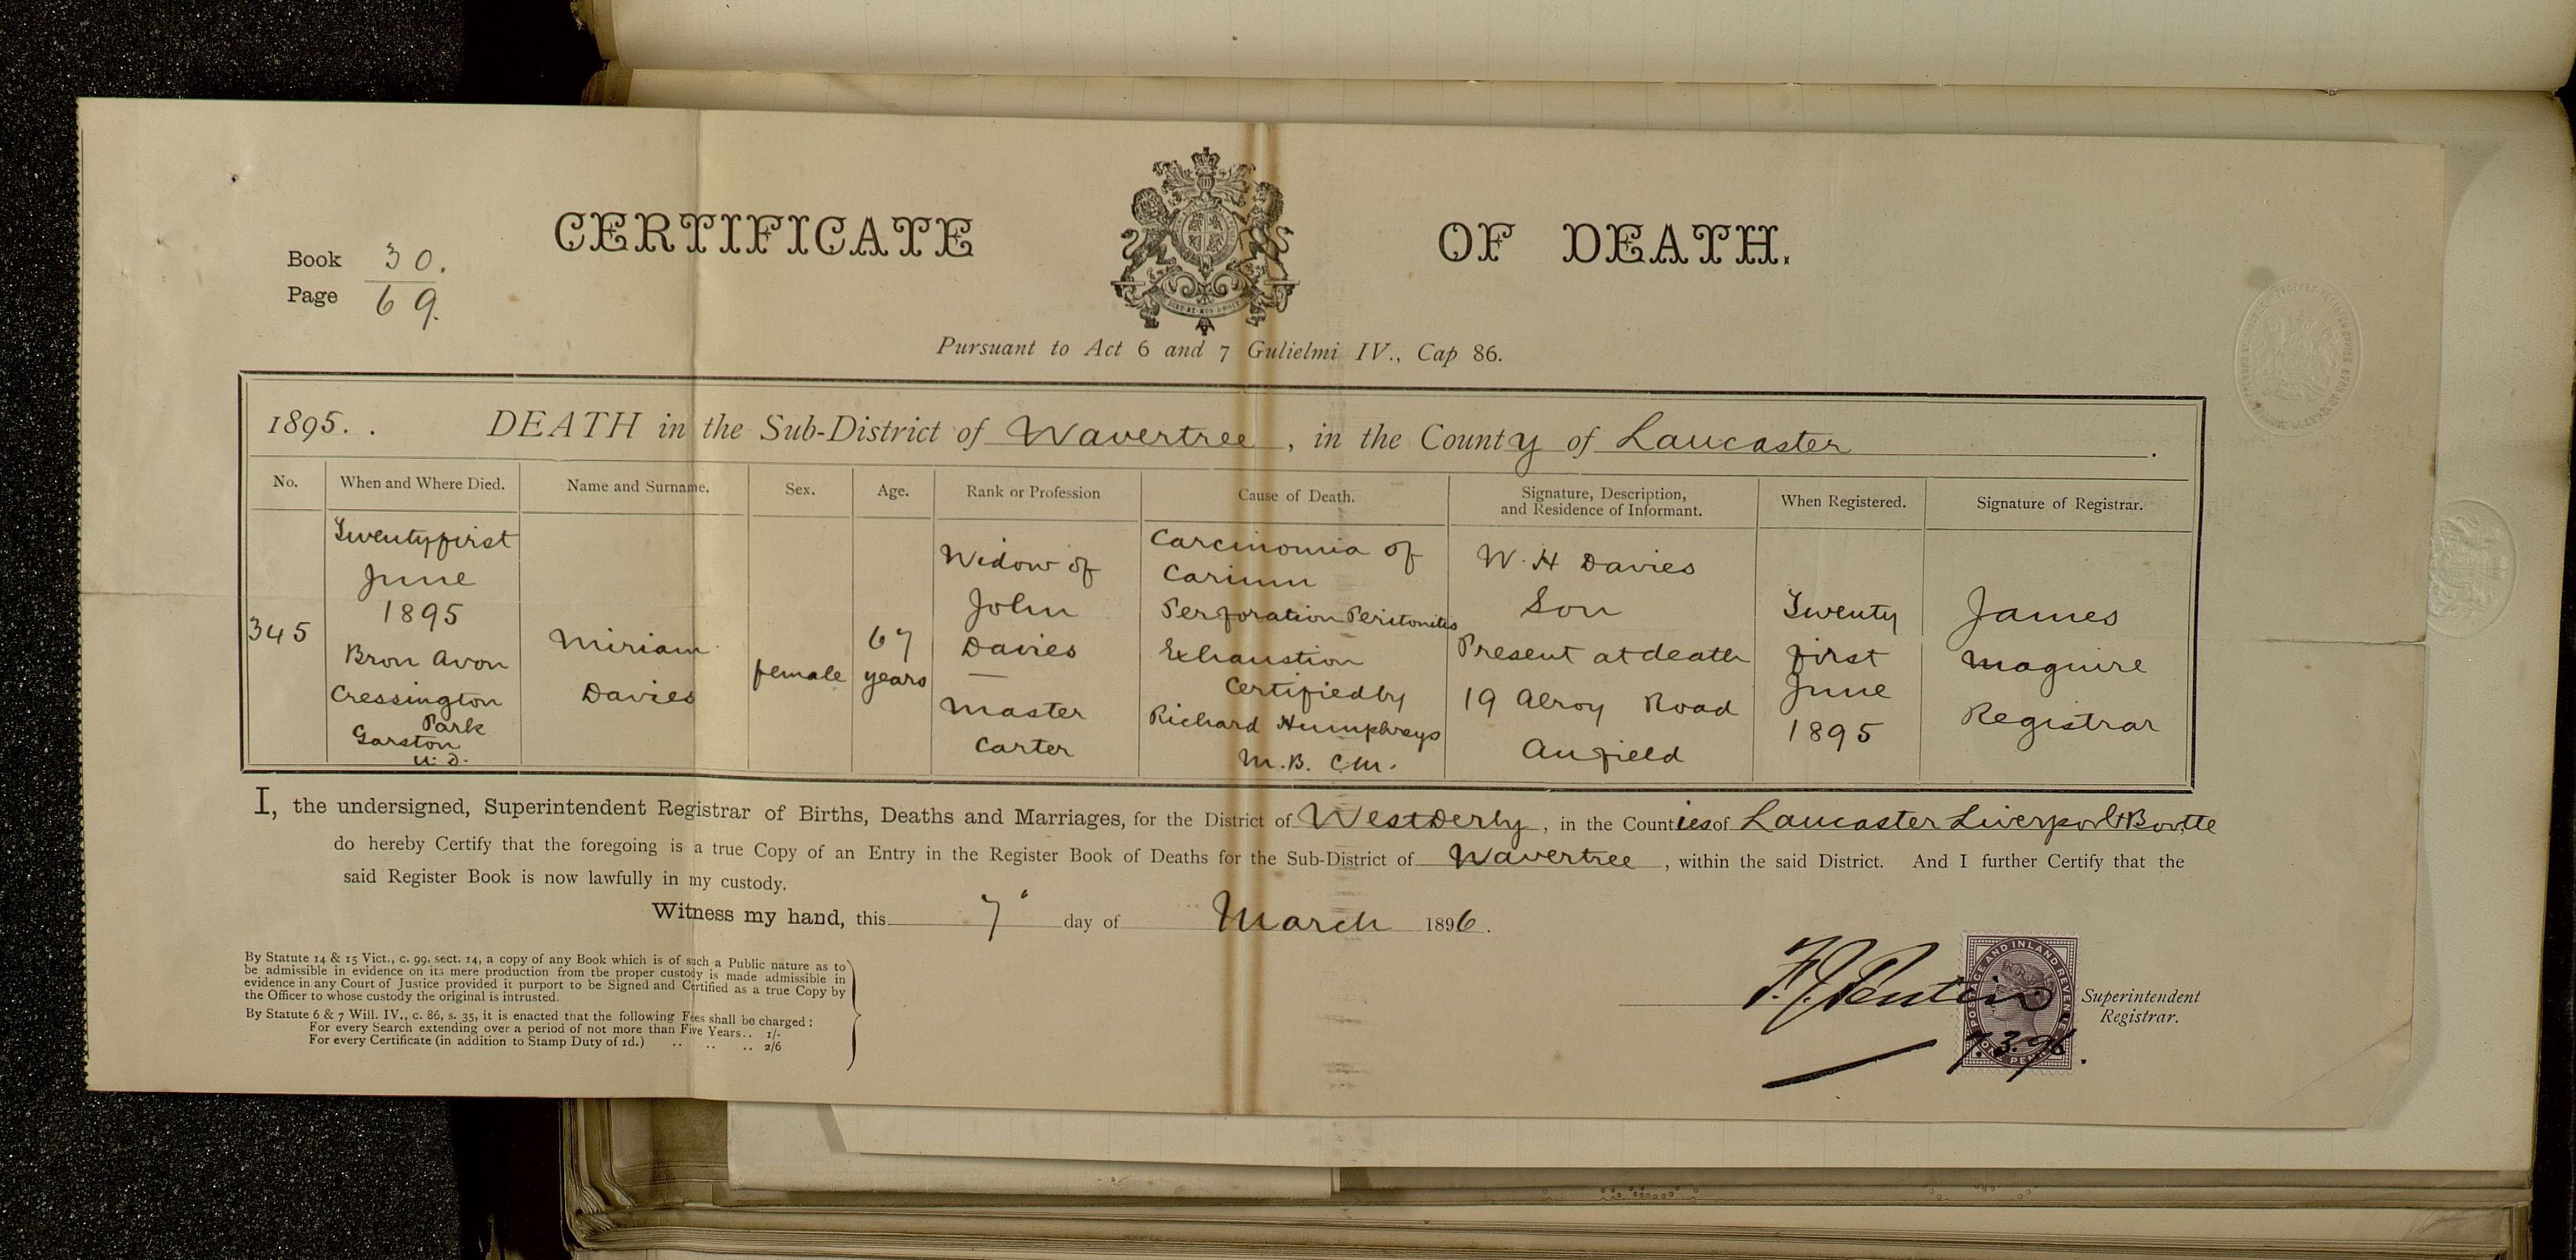 CERTIFICATE OF DEATH.
Book 30.
Page 69.
DIEU ET MON DROIT
Pursuant to Act 6 and 7 Gulielmi IV., Cap 86.
1895. . DEATH in the Sub-District of Wavertree, in the County of Lancaster.
No.
When and Where Died.
Name and Surname.
Sex.
Age.
Rank or Profession
Cause of Death.
Signature, Description,
and Residence of Informant.
When Registered.
Signature of Registrar.
345
Twentyfirst
June
1895
Bron Avon
Cressington
Park
Garston
U. D.
Miriam
Davies
female
67
years
Widow of
John
Davies
—
Master
Carter
Carcinomia of
Perforation Peritonitis
Exhaustion
Certified by
Richard Humphreys
M.B. C.M.
W. H Davies
Son
Present at death
19 Alroy Road
Anfield
Twenty
first
June
1895
James
Maguire
Registrar
I, the undersigned, Superintendent Registrar of Births, Deaths and Marriages, for the District of West Derby, in the Counties of Lancaster Liverpool & Bootle
do hereby Certify that the foregoing is a true Copy of an Entry in the Register Book of Deaths for the Sub-District of Wavertree, within the said District. And I further Certify that the
said Register Book is now lawfully in my custody.
Witness my hand, this 7 day of March 1896.
By Statute 14 & 15 Vict., c. 99. sect. 14, a copy of any Book which is of such a Public nature as to
be admissible in evidence on its mere production from the proper custody is made admissible in
evidence in any Court of Justice provided it purport to be Signed and Certified as a true Copy by
the Officer to whose custody the original is intrusted.
By Statute 6 & 7 Will. IV., c. 86, s. 35, it is enacted that the following Fees shall be charged:
For every Search extending over a period of not more than Five Years.. 1/-
For every Certificate (in addition to Stamp Duty of 1d.) .. .. .. 2/6
POSTAGE AND INLAND REVENUE
ONE PENNY
7.3.96.
Superintendent
Registrar.